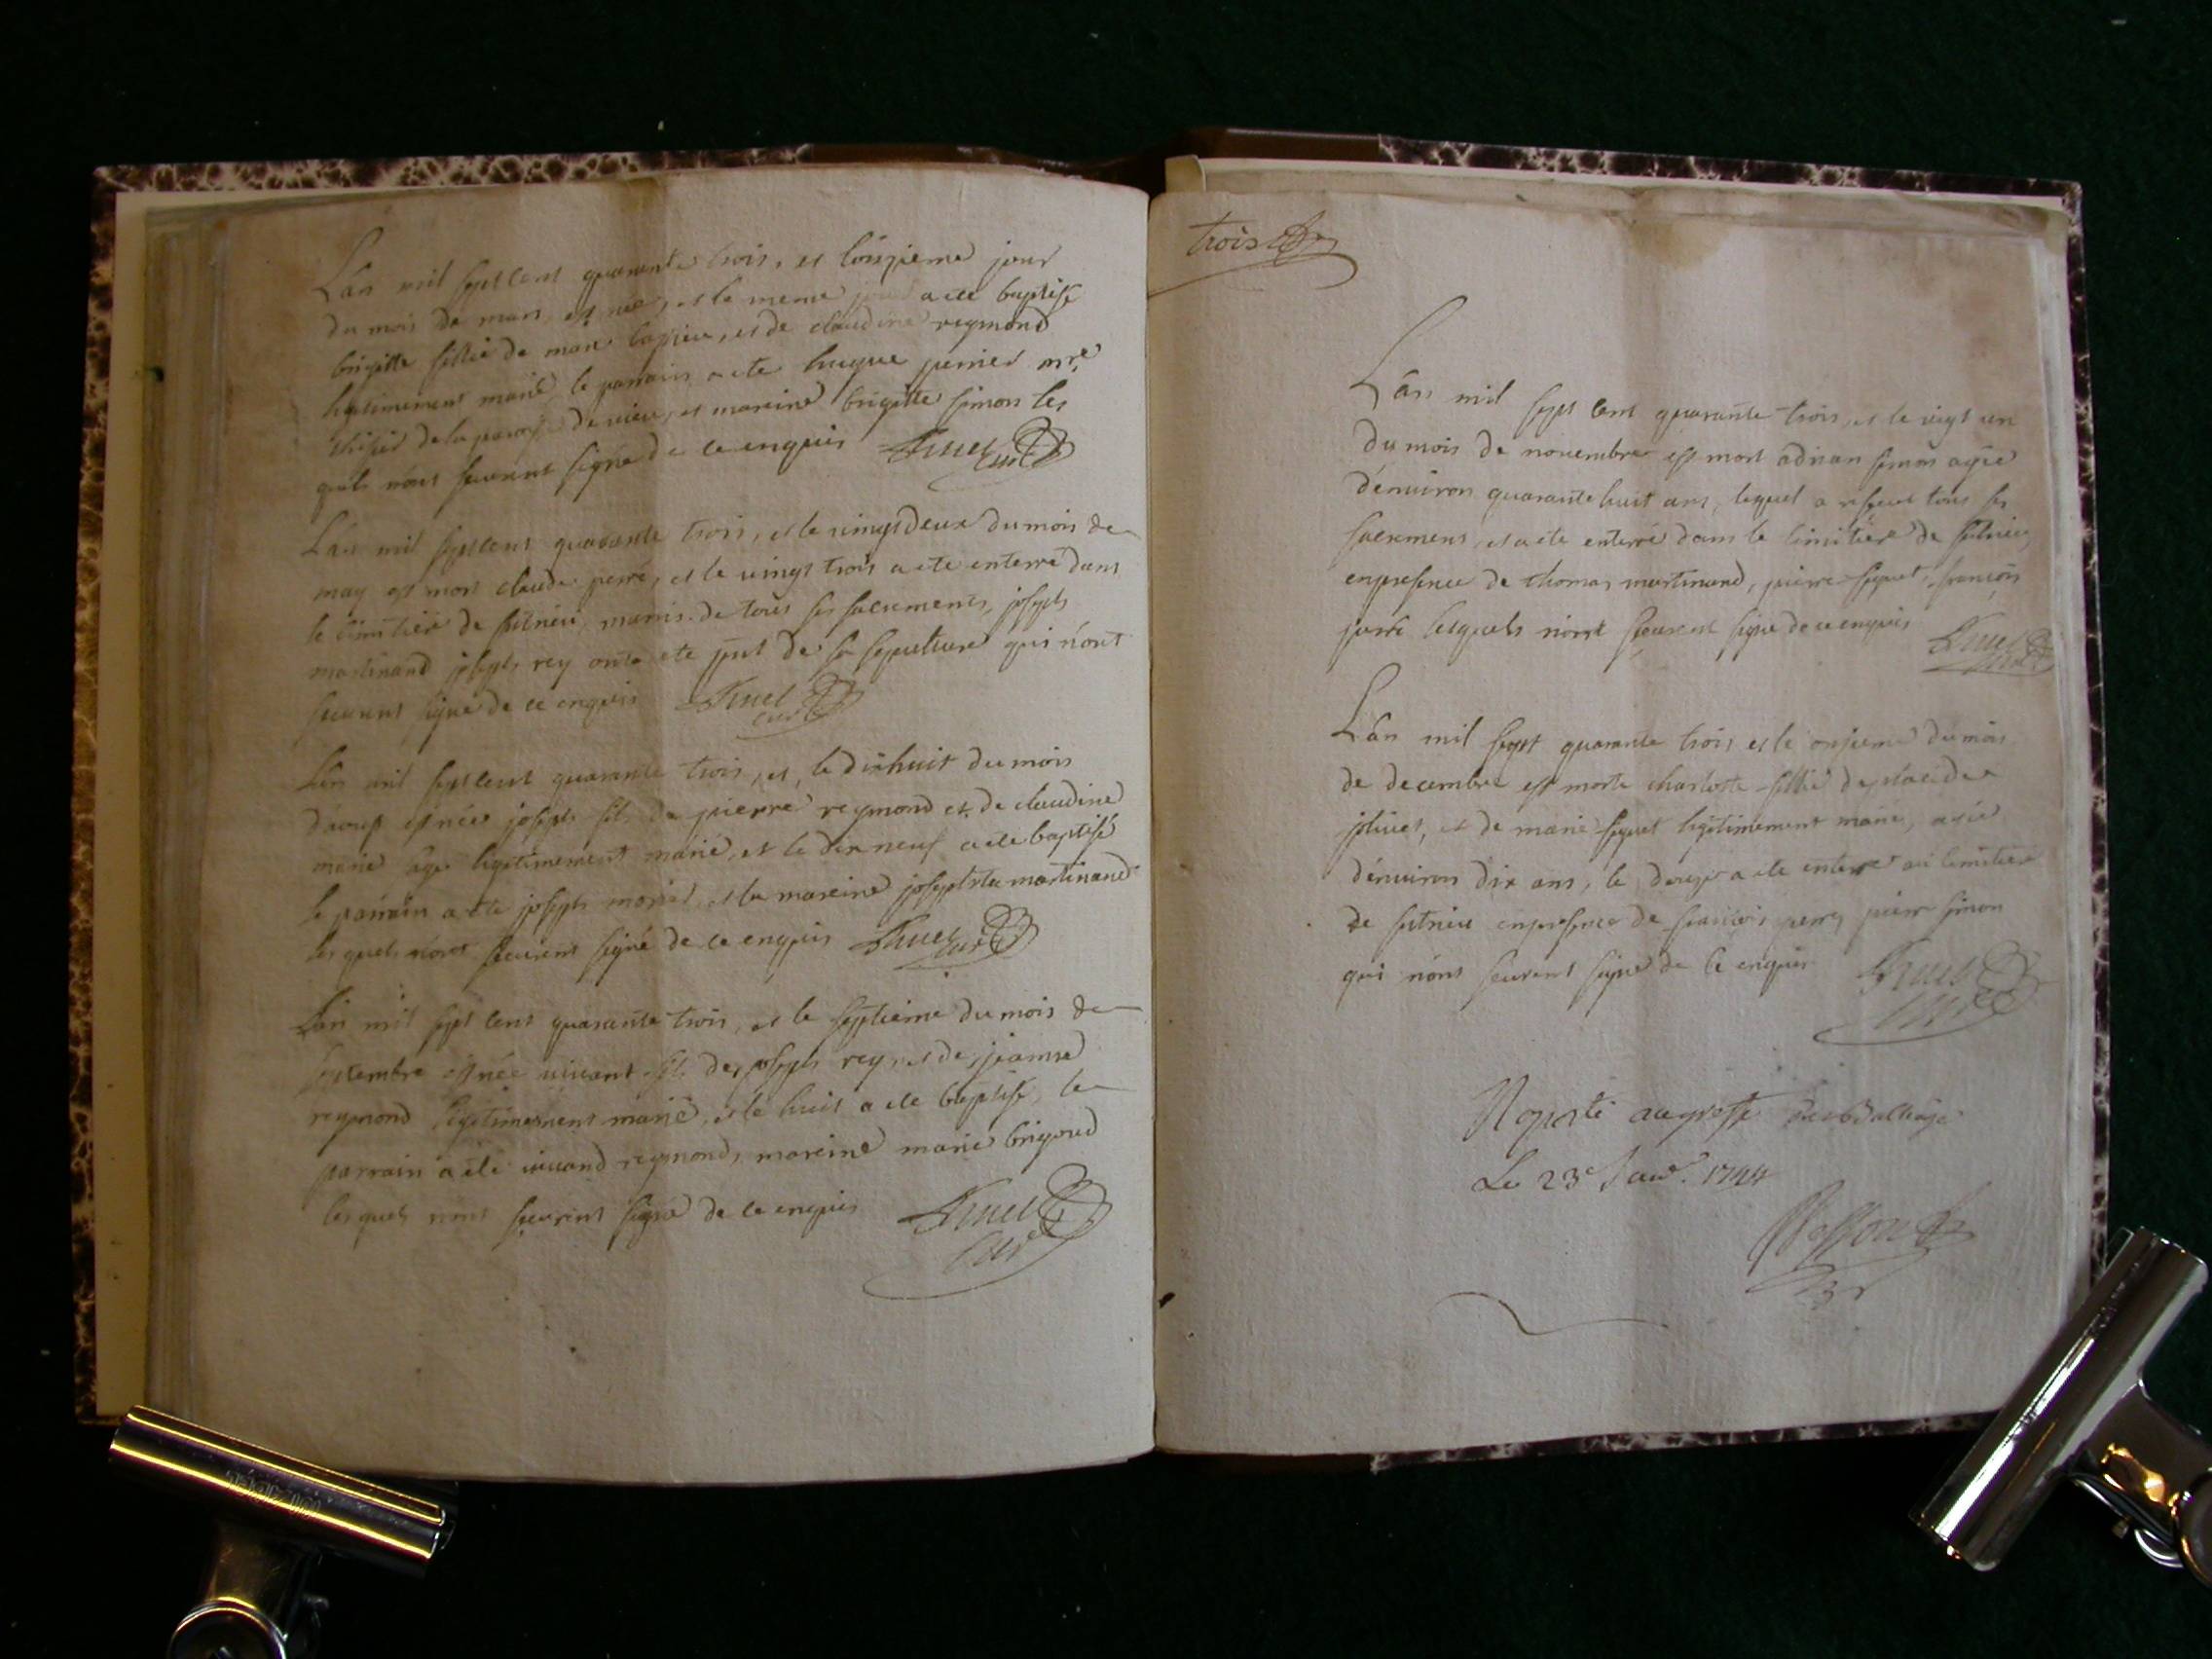 L'an mil sept cent quarante trois, et l'onzieme jour
du mois de mars, est née, et le meme jour a ete baptisé
brigitte fillie de marc et de claudine reymond
legitimement marié, le parrain a ete huque perrier mre
de la paroisse de vieu, et mareine brigitte simon les
quels n'ont seurent signé de ce enquis curé
L'an mil sept cent quarante trois, et le vingt deux du mois de
may est mort claude perré, et le vingt trois a ete enterré dans
le cimitiere de sutrieu, munis de tous ses sacrements, joseph
martinand joseph rey ont ete de sa sepulture qui n'ont
seurent signé de ce enquis curé
L'an mil sept cent quarante trois, et, le dixhuit du mois
d'aoust est née joseph fils de pierre reymond et de claudine
marie legitimement marié, et le dix neuf a ete baptisé
le parrain a ete joseph et la mareine martinand
les quels n'ont seurent signé de ce enquis curé
L'an mil sept cent quarante trois, et le septieme du mois de
septembre est née vivant fils de joseph rey, et de jeanne
reymond legitimement marié, et le huit a ete baptisé, le
parrain a ete vivand reymond, mareine marie brigoud
les quels n'ont seurent signé de ce enquis curé
trois
L'an mil sept cent quarante trois, et le vingt un
du mois de novembre est mort adrian simon agée
d'enuiron quarante huit ans, lequel a resçeu tous ses
sacremens, et a ete enterré dans le cimitiere de sutrieu,
enpresence de thomas martinand, pierre seguet, françois
perré lesquels n'ont seurent signé de ce enquis
curé
L'an mil sept quarante trois et le onzieme du mois
de decembre est morte charlotte fillie de placide
jolivet, et de marie seguet legitimement marié, agée
d'enuiron dix ans, le douze a ete enterré au cimitiere
de sutrieu enpresence de françois perré, pierre simon
qui n'ont seurent signé de ce enquis
curé
Raporté au greffe du baillage
Le 23e Janv. 1744